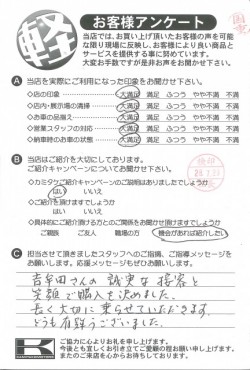 軽
お客様アンケート
当店では、お買い上げ頂いたお客様の声を可能
な限り現場に反映し、お客様により良い商品と
サービスを提供する事に努めています。
大変お手数ですが是非お声をお聞かせ下さい。
A 当店を実際にご利用になった印象をお聞かせ下さい。
◇店の印象 大満足 満足 ふつう やや不満 不満
◇店内・展示場の清掃 大満足 満足 ふつう やや不満 不満
◇お車の品揃え 大満足 満足 ふつう やや不満 不満
◇営業スタッフの対応 大満足 満足 ふつう やや不満 不満
◇納車時のお車の状態 大満足 満足 ふつう やや不満 不満
B 当店はご紹介を大切にしております。
ご紹介キャンペーンについてお聞かせ下さい。
◇カミタケご紹介キャンペーンのご説明はありましたでしょうか
はい いいえ
◇ご紹介を頂けますでしょうか
はい いいえ
◇具体的にご紹介頂ける方とのご関係をお聞かせ頂けますでしょうか
ご親族 ご友人 職場の方 機会があれば紹介したい
C 担当させて頂きましたスタッフへのご指摘、ご指導メッセージを
お願いします。応援メッセージもぜひお願いします。
吉牟田さんの誠実な接客と
笑顔で購入を決めました。
長く大切に乗らせていただきます。
どうも有難うございました。
ご協力に心よりお礼を申し上げます。
今後とも宜しくお引き立てご愛顧の程お願い申し上げます。
またのご来店を心からお待ちしております。